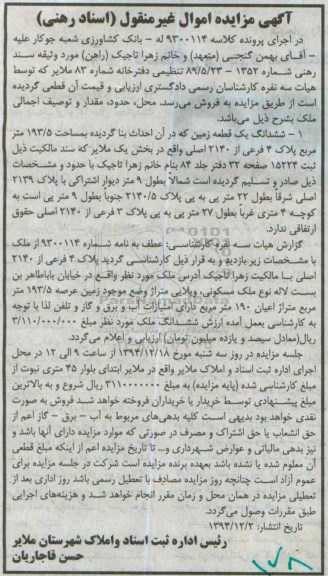 آگهی مزایده اموال غیرمنقول (اسناد رهنی)
در اجرای پرونده کلاسه ۹۳۰۰۱۱۴ له - بانک کشاورزی شعبه جوکار علیه
- آقای بهمن گنجی (متعهد) و خانم زهرا تاجیک (راهن) مورد وثیقه سند
رهنی شماره ۱۳۵۲ - ۸۹/۵/۲۳ تنظیمی دفترخانه شماره ۸۳ ملایر که توسط
هیات سه نفره کارشناسان رسمی دادگستری ارزیابی و قیمت آن قطعی گردیده
است از طریق مزایده به فروش می‌رسد. محل، حدود، مقدار و توصیف اجمالی
ملک بشرح ذیل می‌باشد.
۱ - ششدانگ یک قطعه زمین که در آن احداث بنا گردیده بمساحت ۱۹۳/۵ متر
مربع پلاک ۴ فرعی از ۲۱۴۰ اصلی واقع در بخش یک ملایر که سند مالکیت ذیل
ثبت ۱۵۲۲۴ صفحه ۳۲ دفتر جلد ۸۴ بنام خانم زهرا تاجیک با حدود و مشخصات
ذیل صادر و تسلیم گردیده است شمالاً بطول ۹ متر دیوار اشتراکی با پلاک ۲۱۳۹
اصلی شرقاً بطول ۲۲ متر پی به پی پلاک ۲۱۴۰/۵ جنوباً بطول ۹ متر پی است به
کوچه ۴ متری غرباً بطول ۲۷ متر پی به پی پلاک ۳ فرعی از ۲۱۴۰ اصلی حقوق
ارتفاقی ندارد.
گزارش هیات سه نفره کارشناسی: عطف به نامه شماره ۹۳۰۰۱۱۴ از ملک
با مشخصات زیر بازدید و به قرار ذیل کارشناسی گردید پلاک ۴ فرعی از ۲۱۴۰
اصلی با مالکیت زهرا تاجیک آدرس ملک مورد نظر واقع در خیابان باباطاهر بن
بست لاله نوع ملک مسکونی، ویلایی متراژ وضع موجود زمین عرصه ۱۹۳/۵ متر
مربع متراژ اعیان ۱۹۰ متر مربع دارای امتیازات آب و برق و گاز و تلفن لذا با توجه
به کارشناسی بعمل آمده ارزش ششدانگ ملک مورد نظر مبلغ ۳/۱۱۰/۰۰۰/۰۰۰
ریال(معادل سیصد و یازده میلیون تومان) ارزیابی و اعلام می‌گردد.
جلسه مزایده در روز سه شنبه مورخ ۱۳۹۴/۱۲/۱۸ از ساعت ۹ الی ۱۲ در محل
اجرای اداره ثبت اسناد و املاک ملایر واقع در ملایر ابتدای بلوار ۴۵ متری نبوت از
مبلغ کارشناسی شده (پایه مزایده) به مبلغ ۳۱۱۰۰۰۰۰۰۰ ریال شروع و به بالاترین
مبلغ پیشنهادی توسط خریدار یا خریداران فروخته خواهد شد فروش به صورت
نقدی خواهد بود بدیهی است کلیه بدهی‌های مربوط به آب - برق - گاز اعم از
حق انشعاب یا حق اشتراک و مصرف در صورتی که مورد مزایده دارای آنها باشد و
نیز بدهی مالیاتی و عوارض شهرداری و... تا تاریخ مزایده اعم از اینکه مبلغ قطعی
آن معلوم شده یا نشده باشد بعهده برنده مزایده است شرکت در جلسه مزایده برای
عموم آزاد است چنانچه روز مزایده مصادف با تعطیل رسمی باشد روز اداری بعد از
تعطیلی مزایده در همان محل و زمان مقرر انجام خواهد شد و هزینه‌های اجرایی
طبق مقررات وصول می‌گردد.
تاریخ انتشار: ۱۳۹۴/۱۲/۲
رئیس اداره ثبت اسناد واملاک شهرستان ملایر
حسن قاجاریان